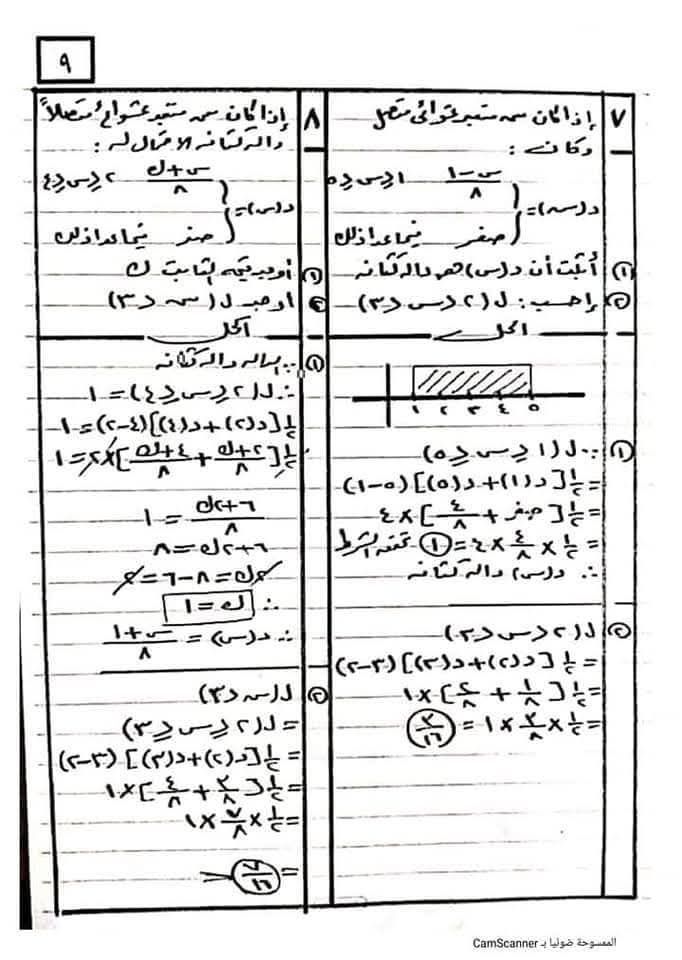 ٩
٧ إذا كان س متغير عشوائى متصل
وكانت :
د(س) = { (س - ١)/٨ ١ ≤ س ≤ ٥
صفر فيما عدا ذلك
(١) أثبت أن د(س) هى دالة كثافة
(٢) إحسب : ل(٢ < س < ٣)
الحل
١ ٢ ٣ ٤ ٥
(١) ∵ ل(١ ≤ س ≤ ٥)
= ١/٢ [د(١) + د(٥)] (٥ - ١)
= ١/٢ [صفر + ٤/٨] × ٤
= ١/٢ × ٤/٨ × ٤ = ١ تحقق الشرط
∴ د(س) دالة كثافة
(٢) ل(٢ < س < ٣)
= ١/٢ [د(٢) + د(٣)] (٣ - ٢)
= ١/٢ [١/٨ + ٢/٨] × ١
= ١/٢ × ٣/٨ × ١ = ٣/١٦
٨ إذا كان س متغير عشوائى متصلاً
دالة كثافة الاحتمال له :
د(س) = { (س + ك)/٨ ٢ ≤ س ≤ ٤
صفر فيما عدا ذلك
(١) أوجد قيمة الثابت ك
(٢) أوجد ل(س < ٣)
الحل
(١) ∵ الدالة دالة كثافة
∴ ل(٢ ≤ س ≤ ٤) = ١
١/٢ [د(٢) + د(٤)] (٤ - ٢) = ١
١/٢ [(٢ + ك)/٨ + (٤ + ك)/٨] × ٢ = ١
(٦ + ٢ك)/٨ = ١
٦ + ٢ك = ٨
٢ك = ٨ - ٦ = ٢
∴ ك = ١
∴ د(س) = (س + ١)/٨
(٢) ل(س < ٣)
= ل(٢ ≤ س ≤ ٣)
= ١/٢ [د(٢) + د(٣)] (٣ - ٢)
= ١/٢ [٣/٨ + ٤/٨] × ١
= ١/٢ × ٧/٨ × ١
= ٧/١٦
الممسوحة ضوئيا بـ CamScanner